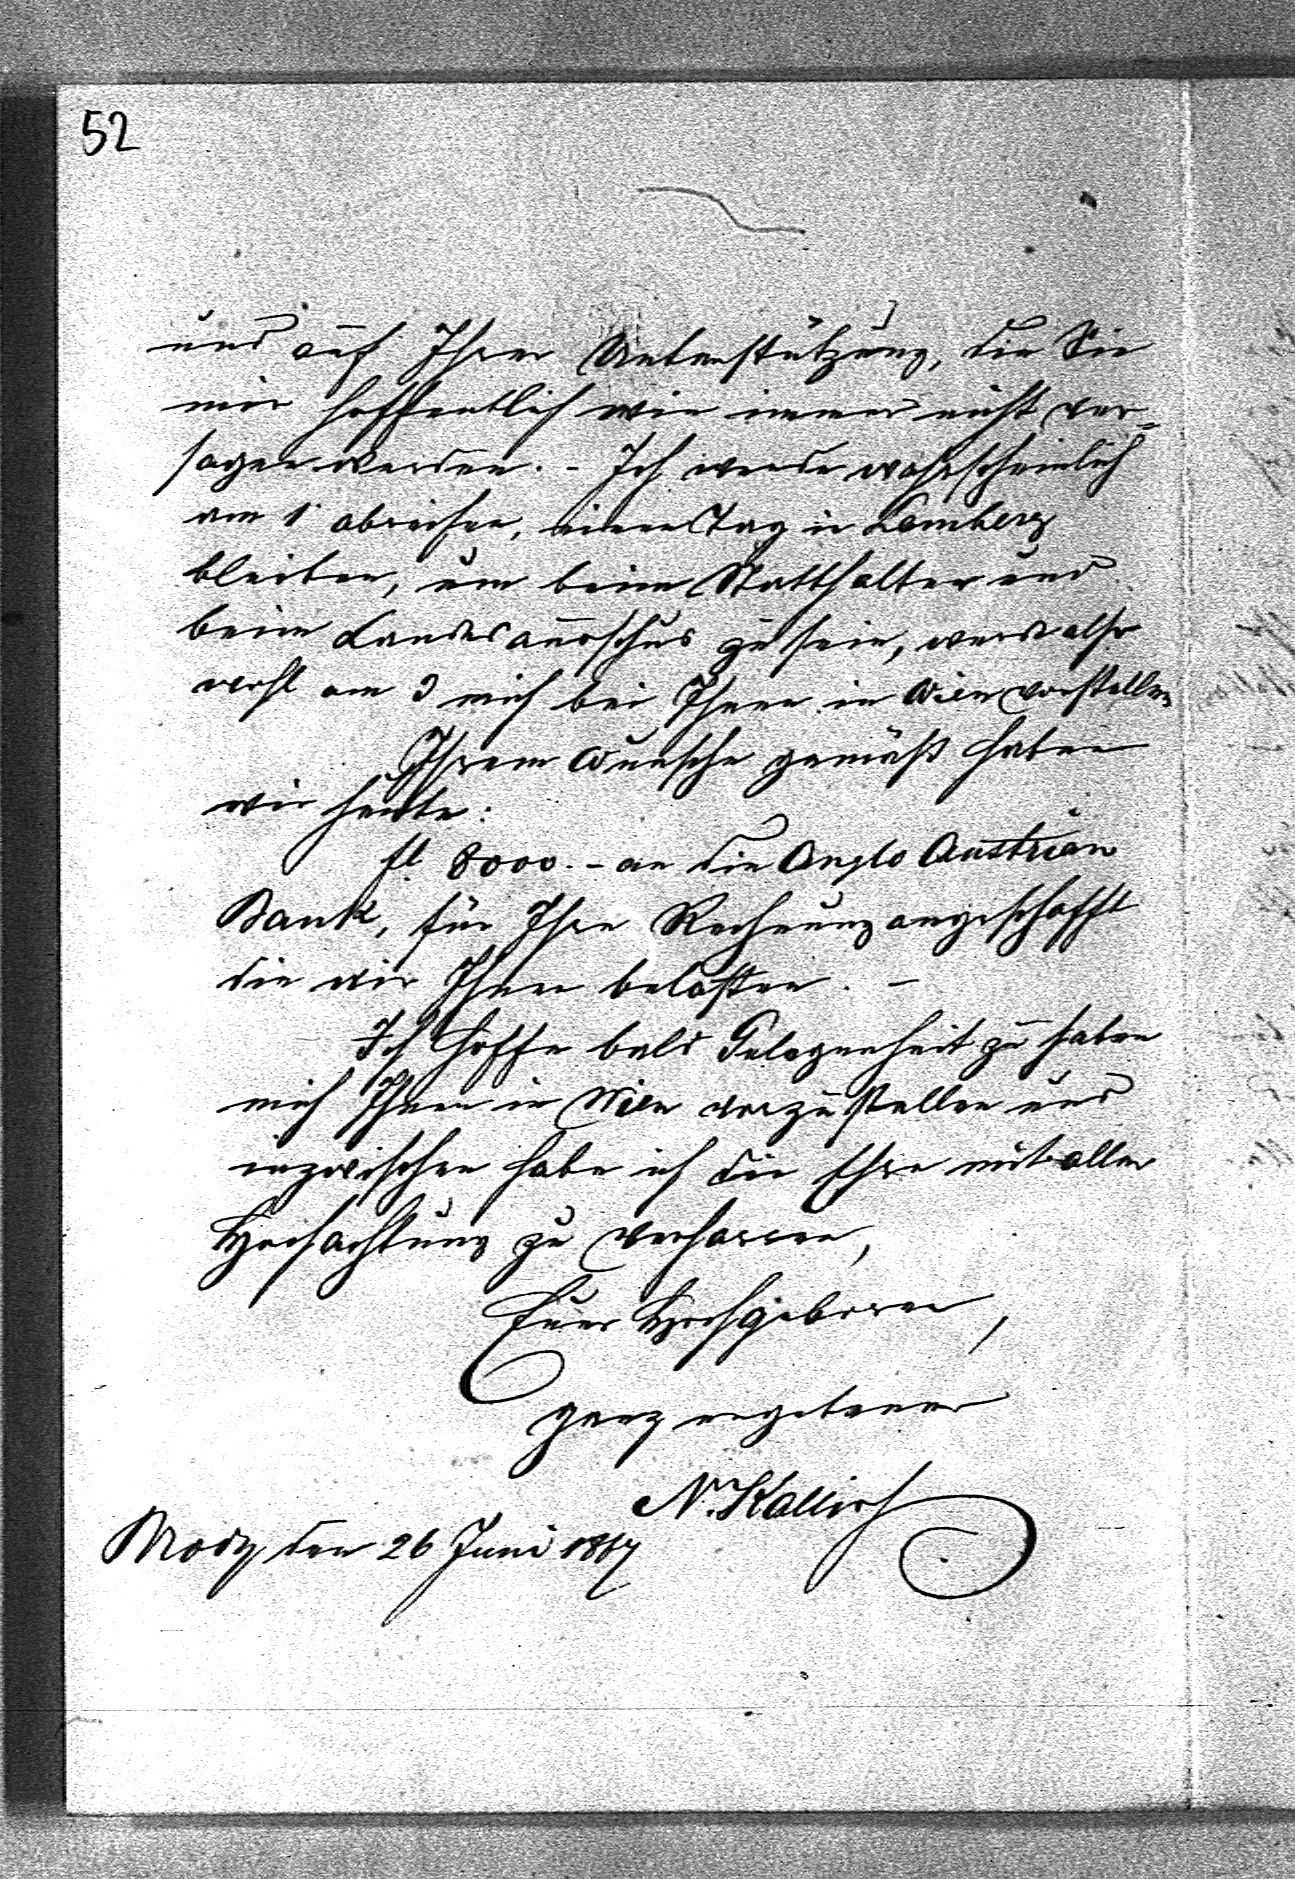 52
und auf Ihrer Unterstützung, die Sie
mir hoffentlich wie immer nicht ver=
sagen werden. - Ich werde wahrscheinlich
am 1 abreisen, einen Tag in Lemberg
bleiben, um beim Statthalter und
beim Landesausschus zu sein, werde also
wohl am 3 mich bei Ihnen in Wien vorstellen
Ihrem Wunsche gemäß haben
wir heute:
fl 8000.- an die Anglo Austrian
Bank, für Ihre Rechnung angeschafft
die wir Ihnen belasten. -
Ich hoffe bald Gelegenheit zu haben
mich Ihnen in Wien vorzustellen und
inzwischen habe ich die Ehre mit aller
Hochachtung zu verharren,
Euer Hochgeboren,
ganz ergebener
N. Kallir
Brody den 26 Juni 1867